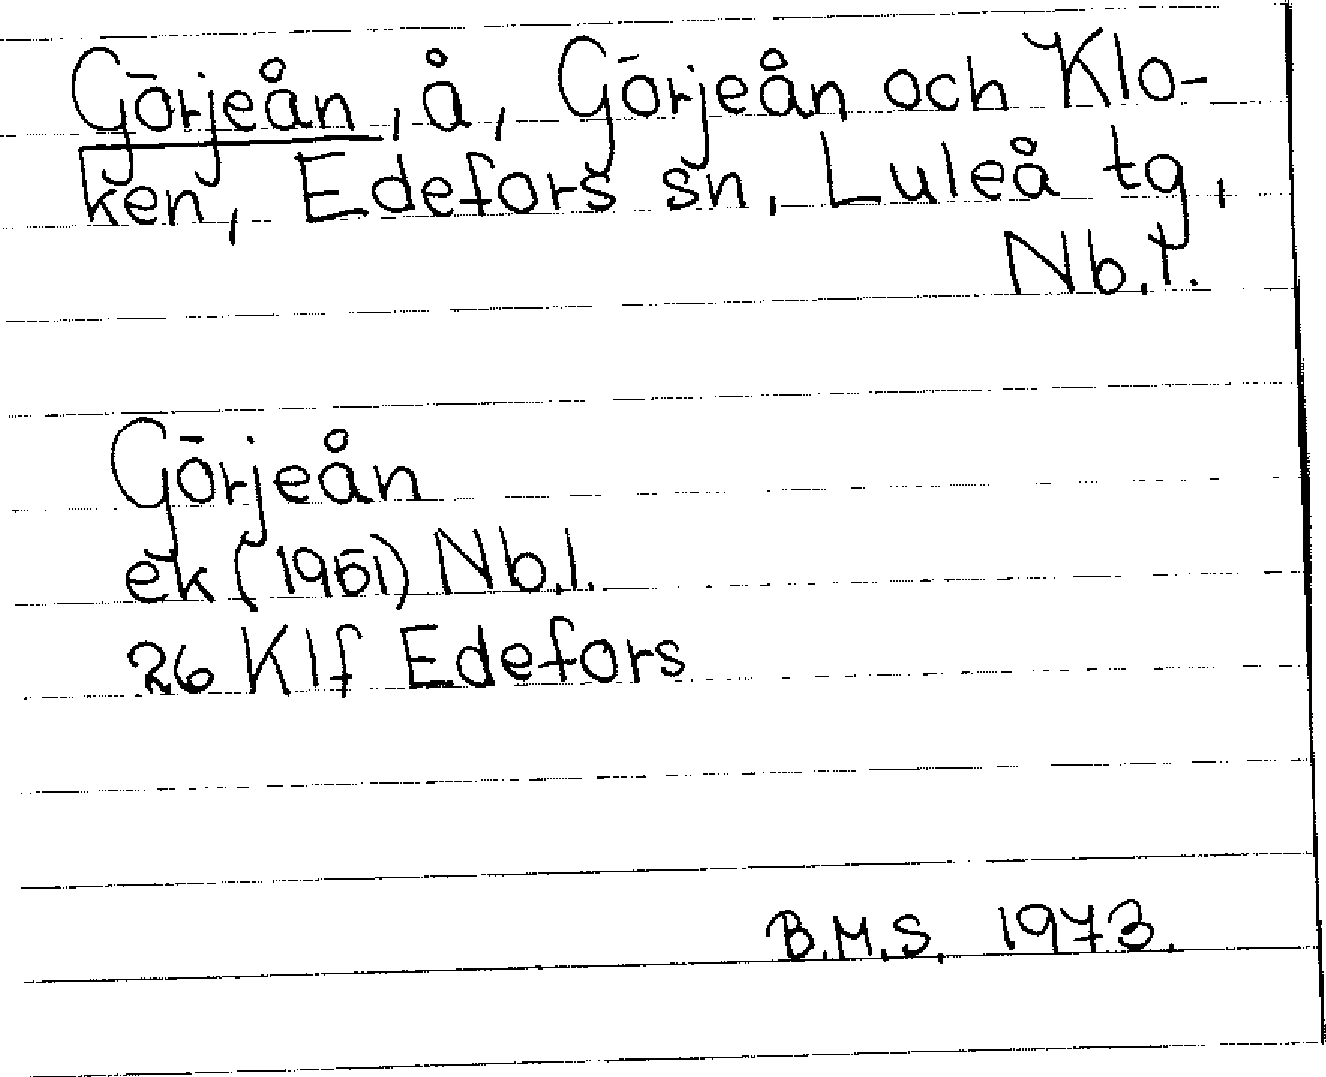 Görjeån, å, Görjeån och Klo-
ken, Edefors sn, Luleå tg,
Nb.l.
Görjeån
ek (1961) Nb.l.
26 Klf Edefors
B.M.S. 1973.